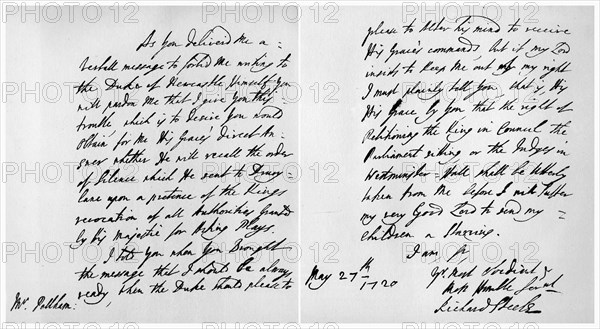 As you delivered me a
verball message to forbid me writing to
the Duke of Newcastle Himself, you
will pardon me that I give you this
trouble which is to desire you would
obtain for me His Grace's direct An=
swer whether He will recall the order
of Silence which He sent to Drury-
lane upon a pretence of the Kings
revocation of all Authorities Granted
by his Majestie for Acting Plays.
I told you when you Brought
the message that I should be always
ready when the Duke should please to
Mr. Pellham:
please to alter his mind to receive
His Grace's commands but if my Lord
insists to keep me out of my right
I must plainly tell you, that is, His
His Grace by you that the right of
Petitioning the King in Councel the
Parliament sitting or the Judges in
Westminster-Hall shall be utterly
taken from me before I will suffer
my very Good Lord to send my
children a starving.
I am Sr
Yr. Most Obedient &
Most Humble Servt
Richard Steele
May 27th
1720
PHOTO 12